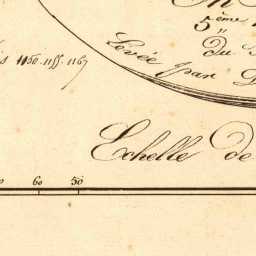 5ème
Du
Levée par
1150. 1155. 1167
Echelle de
60 50